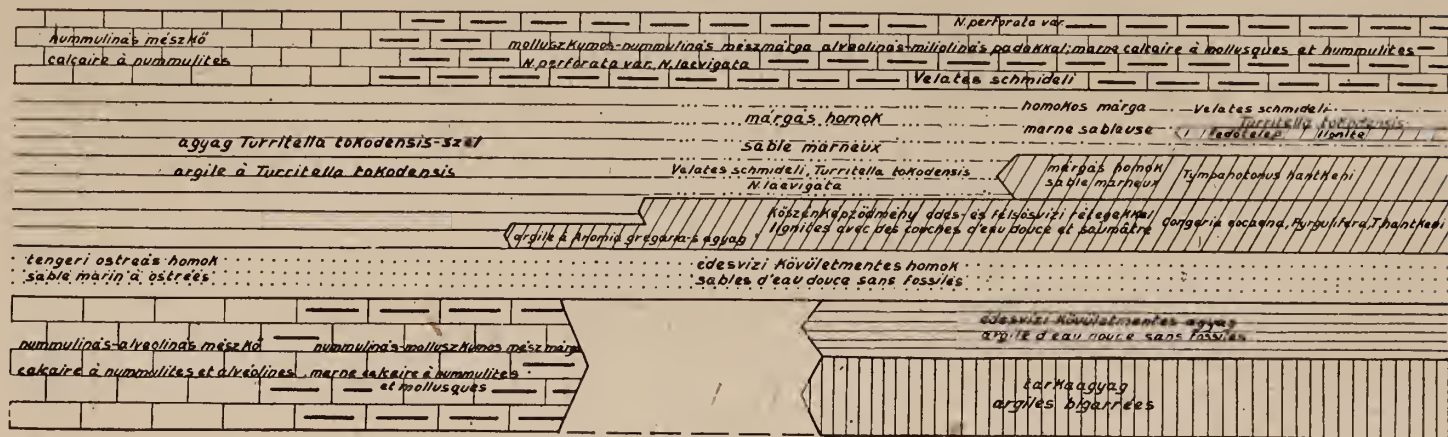 N. perforata var.
nummulinás mészkő
calcaire à nummulites
molluszkumos-nummulinás mészmárga alveolinás-miliolinás padokkal; marne calcaire à mollusques et nummulites
N. perforata var. N. laevigata
Velates schmideli
homokos márga
Velates schmideli
márgás homok
Turritella tokodensis
marne sableuse
fedőtelep lignite
agyag Turritella tokodensis-szel
sable marneux
argile à Turritella tokodensis
Velates schmideli, Turritella tokodensis
N. laevigata
márgás homok
sable marneux
Tympanotonus hantkeni
Kőszénképződmény édes- és félsósvizi rétegekkel
lignites avec des couches d'eau douce et saumâtre
Congeria eocaena, Pyrgulifera, T. hantkeni
argile à Anomia gregaria-s agyag
tengeri ostreás homok
sable marin à ostréés
édesvizi Kövületmentes homok
sables d'eau douce sans fossiles
édesvizi Kövületmentes agyag
argile d'eau douce sans fossiles
nummulinás-alveolinás mészkő
nummulinás-molluszkumos mészmárga
calcaire à nummulites et alvéolines
marne calcaire à nummulites
et mollusques
tarkaagyag
argiles bigarrées